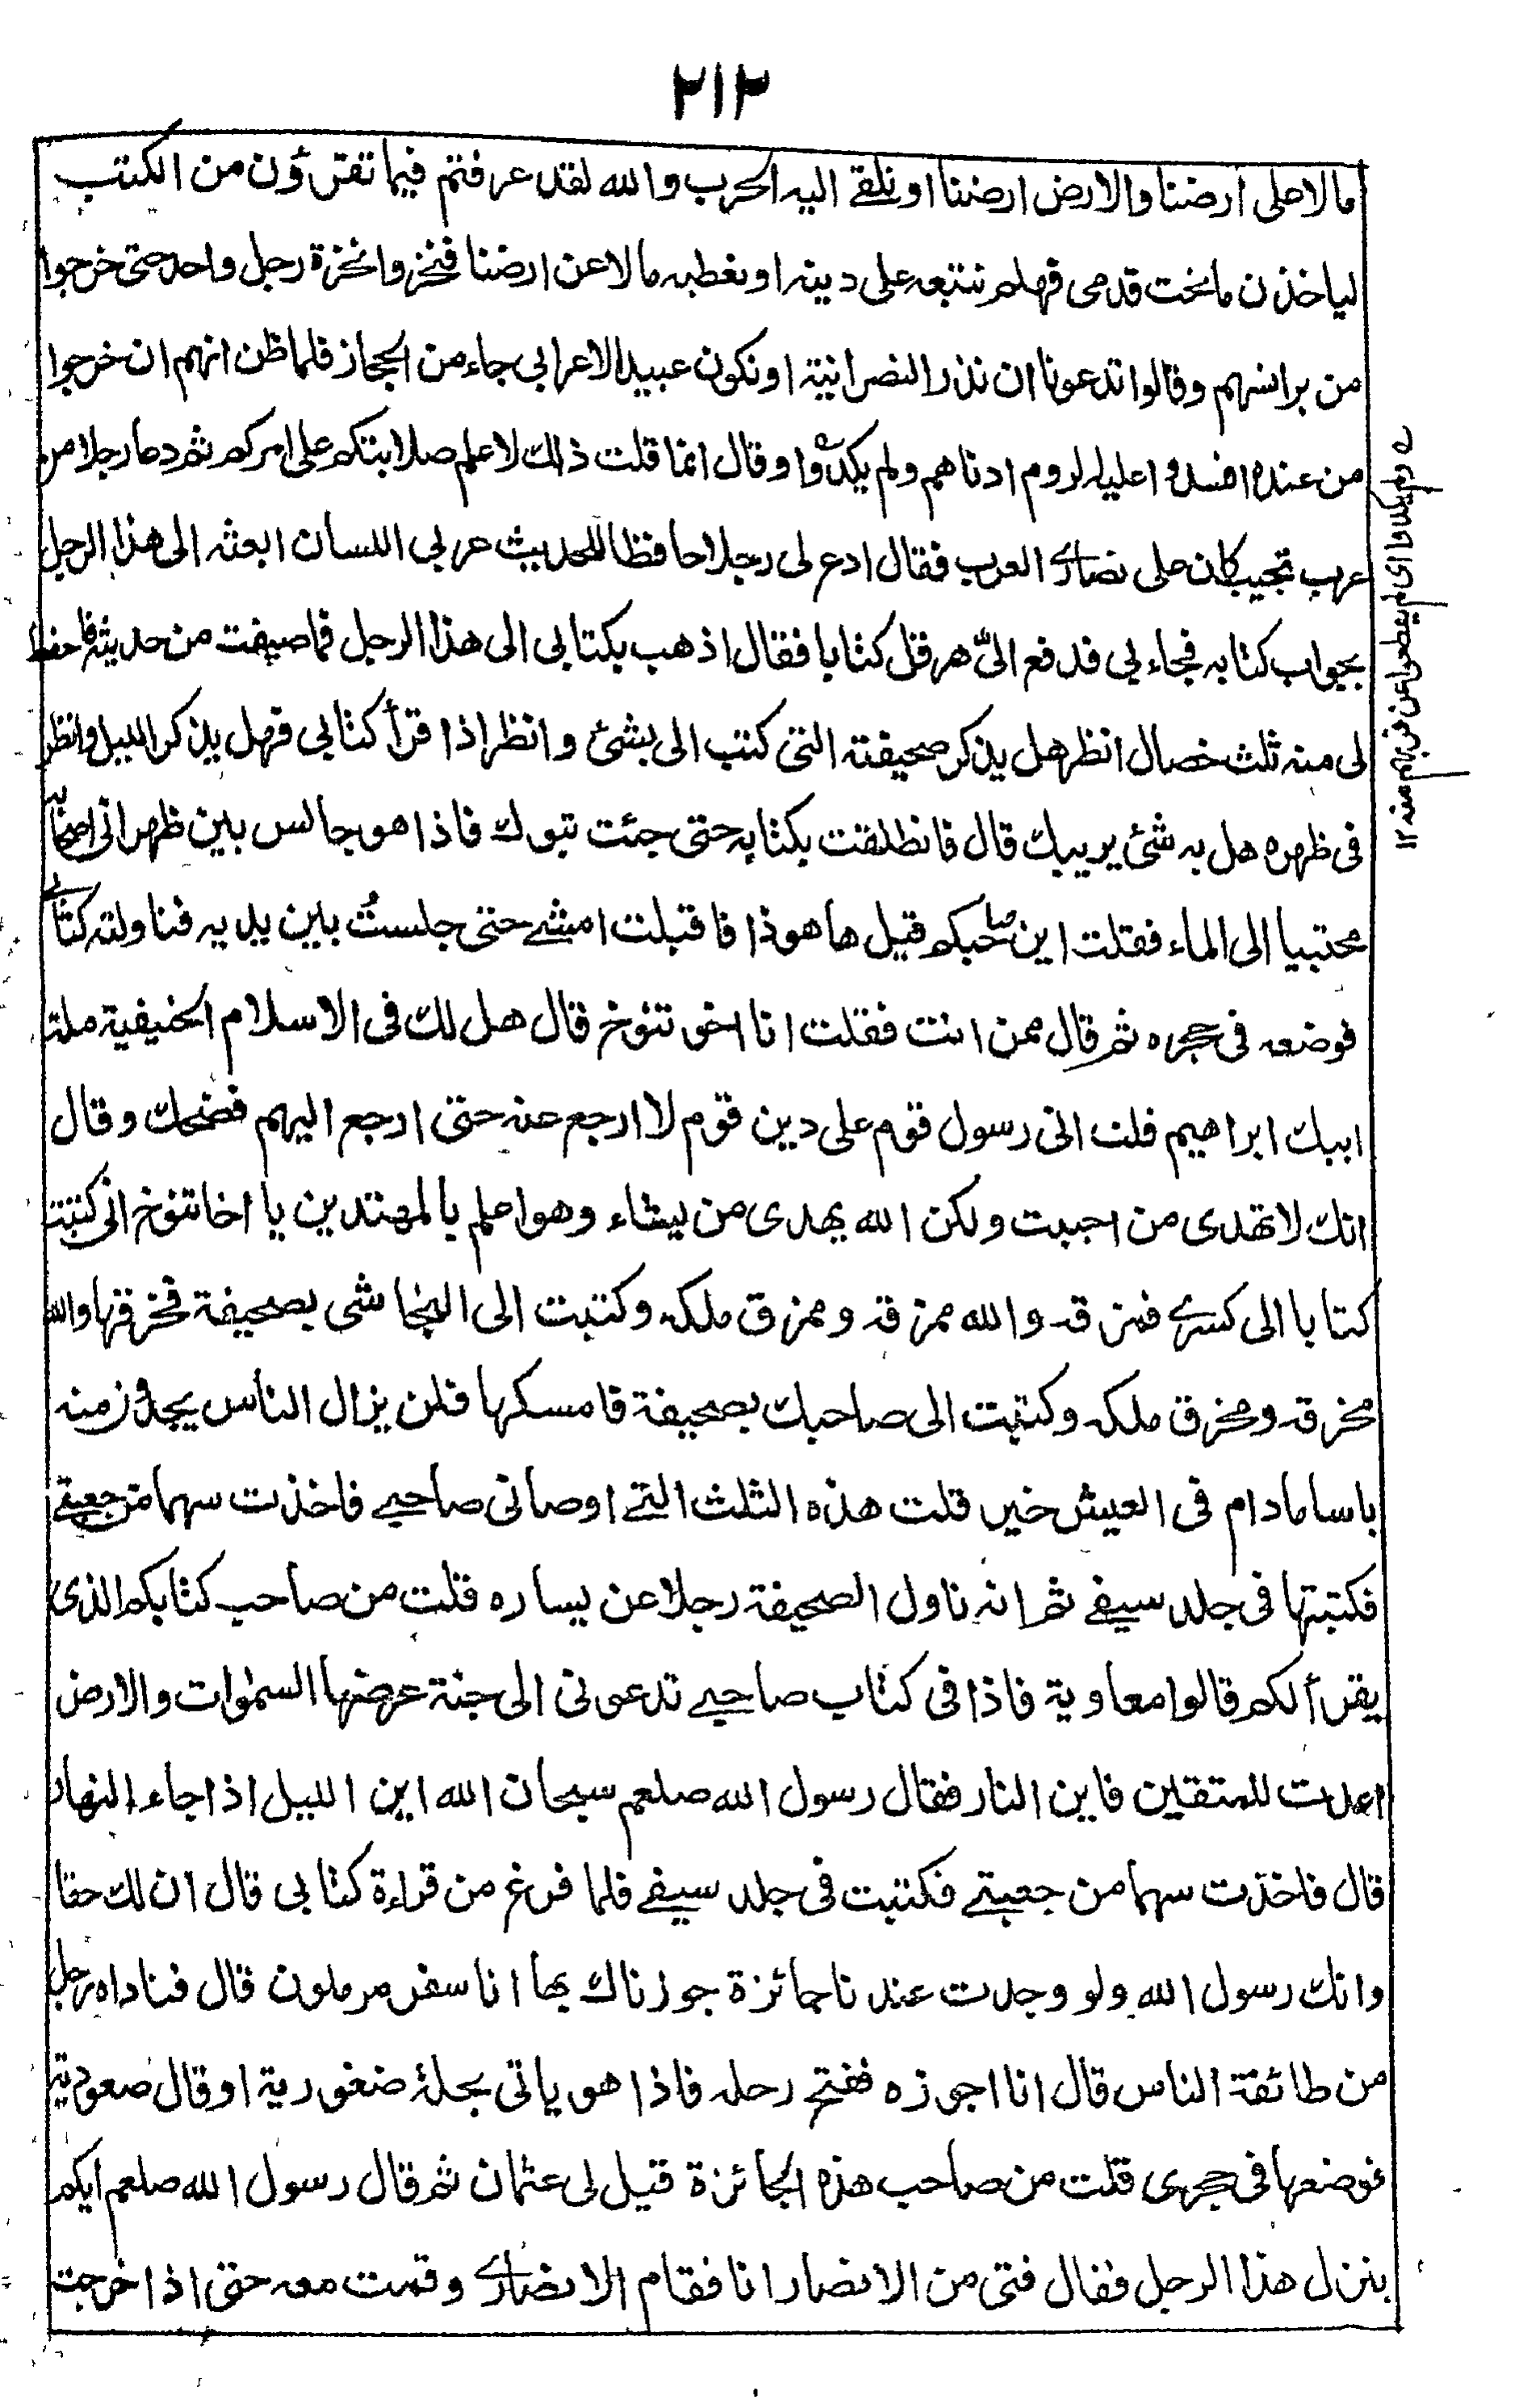 ۲۱۲
مالا على ارضنا والارض ارضنا او نلقے اليه الحرب والله لقد عرفتم فيما تقرؤن من الكتب
لياخذن ما تحت قدمى فهلم نتبعه على دينه او نعطيه مالا عن ارضنا فنخروا نخرة رجل واحد حتى خرجوا
من برانسهم وقالوا تدعونا ان نذر النصرانية او نكون عبيدا لاعرابى جاء من الحجاز فلما ظن انهم ان خرجوا
من عنده افسدوا عليه الروم ادناهم ولم يكدوا وقال انما قلت ذلك لاعلم صلابتكم على امركم ثم دعا رجلا من
عرب تجيب كان على نصارے العرب فقال ادع لى رجلا حافظا للحديث عربى اللسان ابعثه الى هذا الرجل
بجواب كتابه فجاء بى فدفع الىّ هرقل كتابا فقال اذهب بكتابى الى هذا الرجل فما صيفت من حديثه فاحفظ
لى منه ثلث خصال انظر هل يذكر صحيفته التى كتب الى بشئ وانظر اذا قرأ كتابى فهل يذكر الليل وانظر
فى ظهره هل به شئ يريبك قال فانطلقت بكتابه حتى جئت تبوك فاذا هو جالس بين ظهرانى اصحابه
محتبيا الى الماء فقلت اين صاحبكم قيل ها هوذا فاقبلت امشے حتى جلستُ بين يديه فناولته كتابے
فوضعه فى حجره ثم قال ممن انت فقلت انا اخو تنوخ قال هل لك فى الاسلام الحنيفية ملة
ابيك ابراهيم قلت انى رسول قوم على دين قوم لا ارجع عنه حتى ارجع اليهم فضحك وقال
انك لا تهدى من احببت ولكن الله يهدى من يشاء وهو اعلم بالمهتدين يا اخا تنوخ انى كتبت
كتابا الى كسرے فمزقه والله ممزقه وممزق ملكه وكتبت الى النجاشى بصحيفة فخرقها والله
مخرقه ومخرق ملكه وكتبت الى صاحبك بصحيفة فامسكها فلن يزال الناس يجدون منه
باسا مادام فى العيش خير قلت هذه الثلث التے اوصانى صاحبے فاخذت سهما من جعبتے
فكتبتها فى جلد سيفے ثم انه ناول الصحيفة رجلا عن يساره قلت من صاحب كتابكم الذى
يقرأ لكم قالوا معاوية فاذا فى كتاب صاحبے تدعونى الى جنة عرضها السمٰوات والارض
اعدت للمتقين فاين النار فقال رسول الله صلعم سبحان الله اين الليل اذا جاء النهار
قال فاخذت سهما من جعبتے فكتبت فى جلد سيفے فلما فرغ من قراءة كتابى قال ان لك حقا
وانك رسول الله ولو وجدت عندنا جائزة جوزناك بها انا سفر مرملون قال فناداه رجل
من طائفة الناس قال انا اجوزه ففتح رحله فاذا هو ياتى بحلة ضغورية او قال صعودية
فوضعها فى حجرى قلت من صاحب هذه الجائزة قيل لى عثمان ثم قال رسول الله صلعم ايكم
ينزل هذا الرجل فقال فتى من الانصار انا فقام الانصارے وقمت معه حتى اذا خرجت
ے ولم يكدوا اى لم يقطعوا عن قربهم منه ۱۲